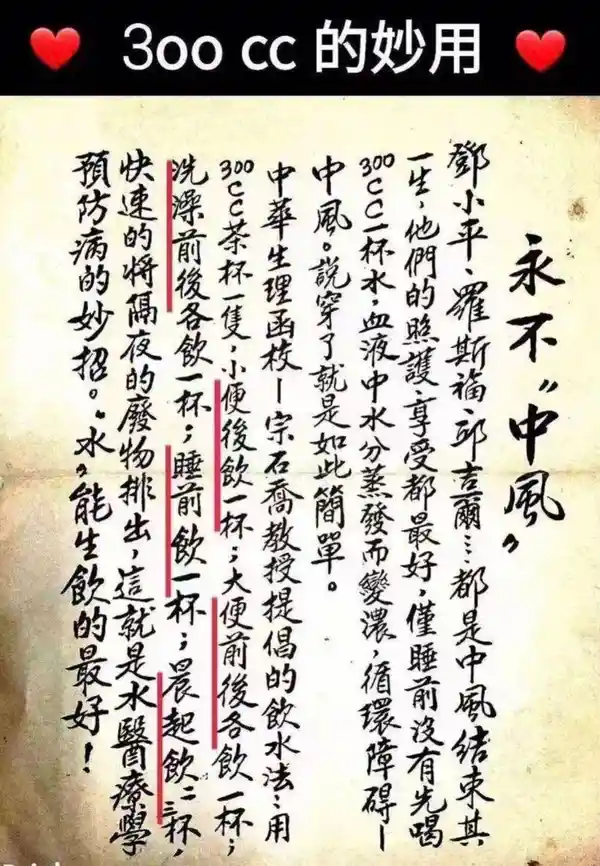 3oo cc 的妙用
永不“中風”
鄧小平、羅斯福、邱吉爾…都是中風結束其
一生,他們的照護、享受都最好,僅睡前沒有先喝
300CC一杯水,血液中水分蒸發而變濃,循環障碍—
中風。說穿了就是如此簡單。
中華生理函校—宗石喬教授提倡的飲水法:用
300CC茶杯一隻,小便後飲一杯;大便前後各飲一杯;
洗澡前後各飲一杯;睡前飲一杯;晨起飲二三杯,
快速的將隔夜的廢物排出,這就是水醫療學
預防病的妙招。“水”能生飲的最好!